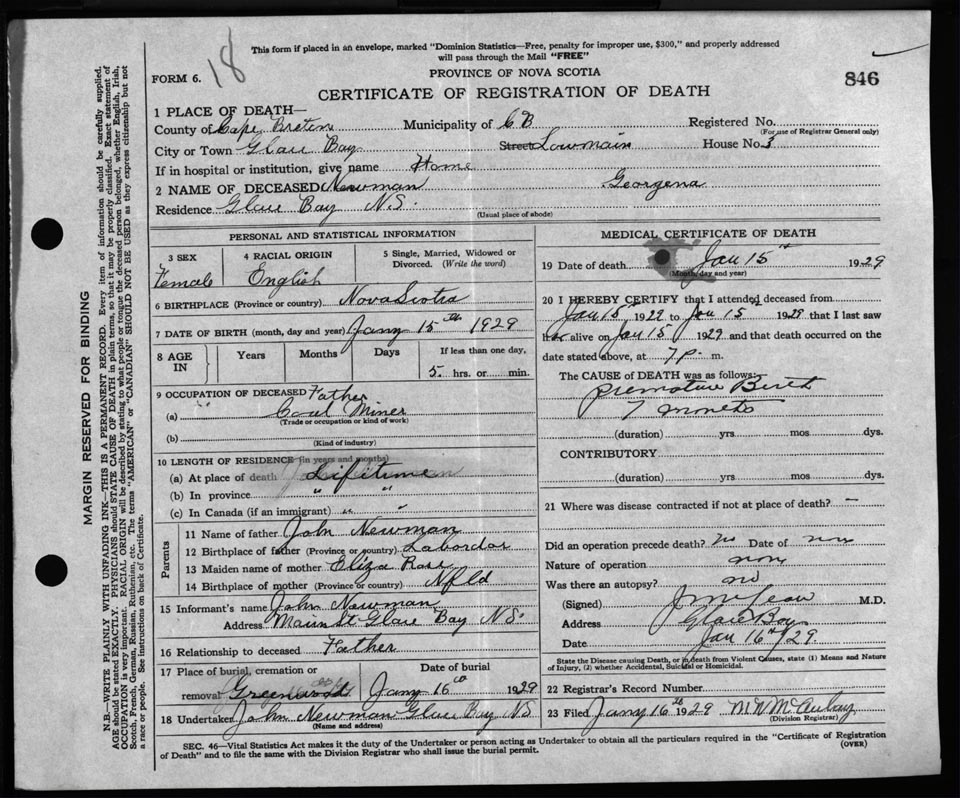 This form if placed in an envelope, marked "Dominion Statistics—Free, penalty for improper use, $300," and properly addressed
will pass through the Mail "FREE"
18
FORM 6.
PROVINCE OF NOVA SCOTIA
846
CERTIFICATE OF REGISTRATION OF DEATH
1 PLACE OF DEATH—
County of Cape Breton Municipality of C B Registered No.
(For use of Registrar General only)
City or Town Glace Bay Street Lowmain House No. 3
If in hospital or institution, give name Home
2 NAME OF DECEASED Newman Georgena
Residence Glace Bay N.S.
(Usual place of abode)
PERSONAL AND STATISTICAL INFORMATION
3 SEX 4 RACIAL ORIGIN 5 Single, Married, Widowed or
Divorced. (Write the word)
Female English
6 BIRTHPLACE (Province or country) Nova Scotia
7 DATE OF BIRTH (month, day and year) Jany 15th 1929
8 AGE IN Years Months Days If less than one day,
5 hrs. or min.
9 OCCUPATION OF DECEASED Father
(a) Coal Miner
(Trade or occupation or kind of work)
(b)
(Kind of industry)
10 LENGTH OF RESIDENCE (in years and months)
(a) At place of death Lifetime
(b) In province " "
(c) In Canada (if an immigrant) " "
Parents
11 Name of father John Newman
12 Birthplace of father (Province or country) Labordor
13 Maiden name of mother Eliza Rose
14 Birthplace of mother (Province or country) Nfld
15 Informant's name John Newman
Address Main St Glace Bay N S.
16 Relationship to deceased Father
17 Place of burial, cremation or Date of burial
removal Greenwood Jany 16th 1929
18 Undertaker John Newman Glace Bay N S
(Name and address)
MEDICAL CERTIFICATE OF DEATH
19 Date of death Jan 15th 1929
(Month, day and year)
20 I HEREBY CERTIFY that I attended deceased from
Jan 15 1929 to Jan 15 1929 that I last saw
her alive on Jan 15 1929 and that death occurred on the
date stated above, at 7 p. m.
The CAUSE of DEATH was as follows:
Premature Birth
7 months
(duration) yrs mos dys.
CONTRIBUTORY
(duration) yrs mos dys.
21 Where was disease contracted if not at place of death? —
Did an operation precede death? no Date of
Nature of operation
Was there an autopsy? no
(Signed) M.D.
Address Glace Bay
Date Jan 16th/29
State the Disease causing Death, or in death from Violent Causes, state (1) Means and Nature
of Injury, (2) whether Accidental, Suicidal or Homicidal.
22 Registrar's Record Number
23 Filed Jany 16th 1929 McAulay
(Division Registrar)
SEC. 46—Vital Statistics Act makes it the duty of the Undertaker or person acting as Undertaker to obtain all the particulars required in the "Certificate of Registration
of Death" and to file the same with the Division Registrar who shall issue the burial permit.
(OVER)
MARGIN RESERVED FOR BINDING
N.B.—WRITE PLAINLY WITH UNFADING INK—THIS IS A PERMANENT RECORD. Every item of information should be carefully supplied.
AGE should be stated EXACTLY. PHYSICIANS should STATE CAUSE OF DEATH in plain terms, so that it may be properly classified. Exact statement of
OCCUPATION is very important. RACIAL ORIGIN will be described by stating to what people or tongue the deceased person belonged, whether English, Irish,
Scotch, French, German, Russian, Ruthenian, etc. The terms "AMERICAN" or "CANADIAN" SHOULD NOT BE USED as they express citizenship but not
a race or people. See instructions on back of Certificate.